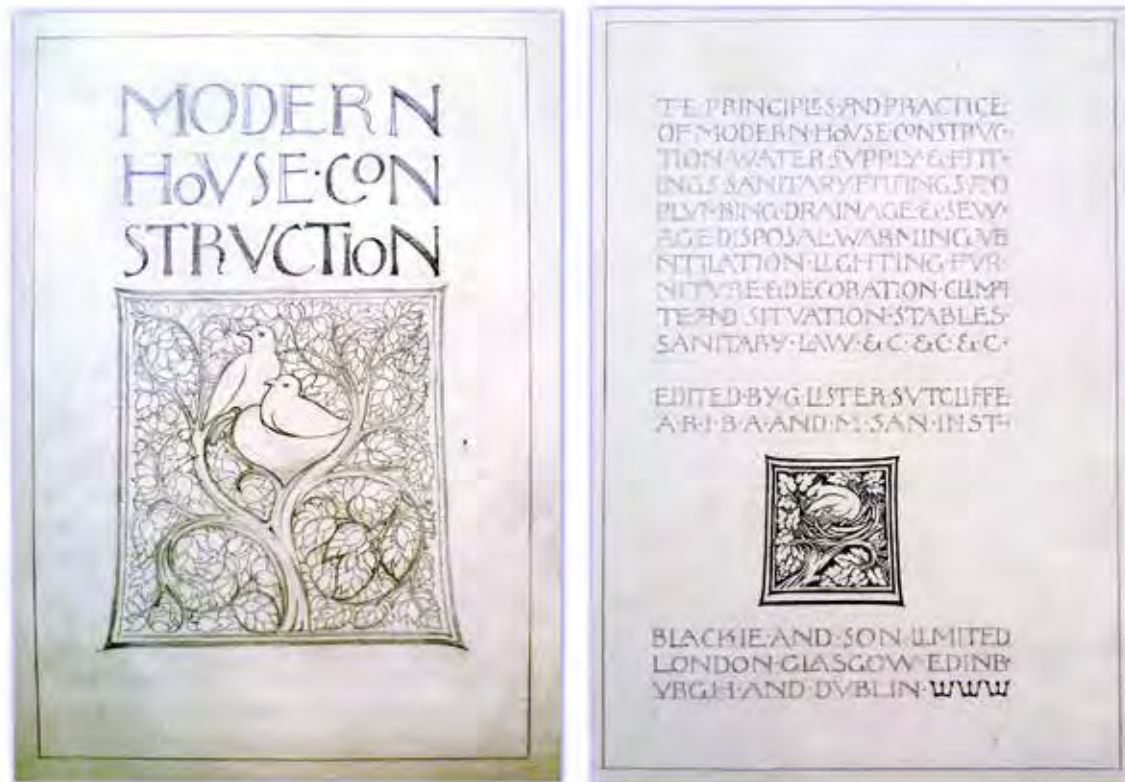 MODERN
HOVSE·CON
STRVCTION
THE PRINCIPLES AND PRACTICE
OF MODERN HOVSE CONSTRVC·
TION·WATER SVPPLY & FITT·
INGS SANITARY FITTINGS AND
PLVMBING·DRAINAGE & SEW·
AGE DISPOSAL WARMING VE
NTILATION·LIGHTING FVR·
NITVRE & DECORATION·CLIMA
TE AND SITVATION·STABLES·
SANITARY·LAW·&C·&C·&C·
EDITED·BY·G·LISTER SVTCLIFFE
A·R·I·B·A·AND·M·SAN·INST·
BLACKIE·AND·SON LIMITED
LONDON·GLASGOW EDINB·
VRGH·AND DVBLIN·WWW